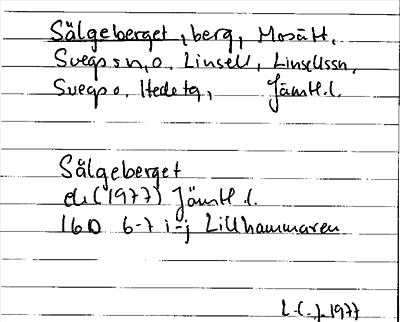 Sälgeberget, berg, Mosätt,
Svegs sn, o. Linsell, Linsellssn,
Svegs o. Hede tg, Jämtl.l.
Sälgeberget
ek (1977) Jämtl.l.
16D 6-7 i-j Lillhammaren
L.C.J. 1977